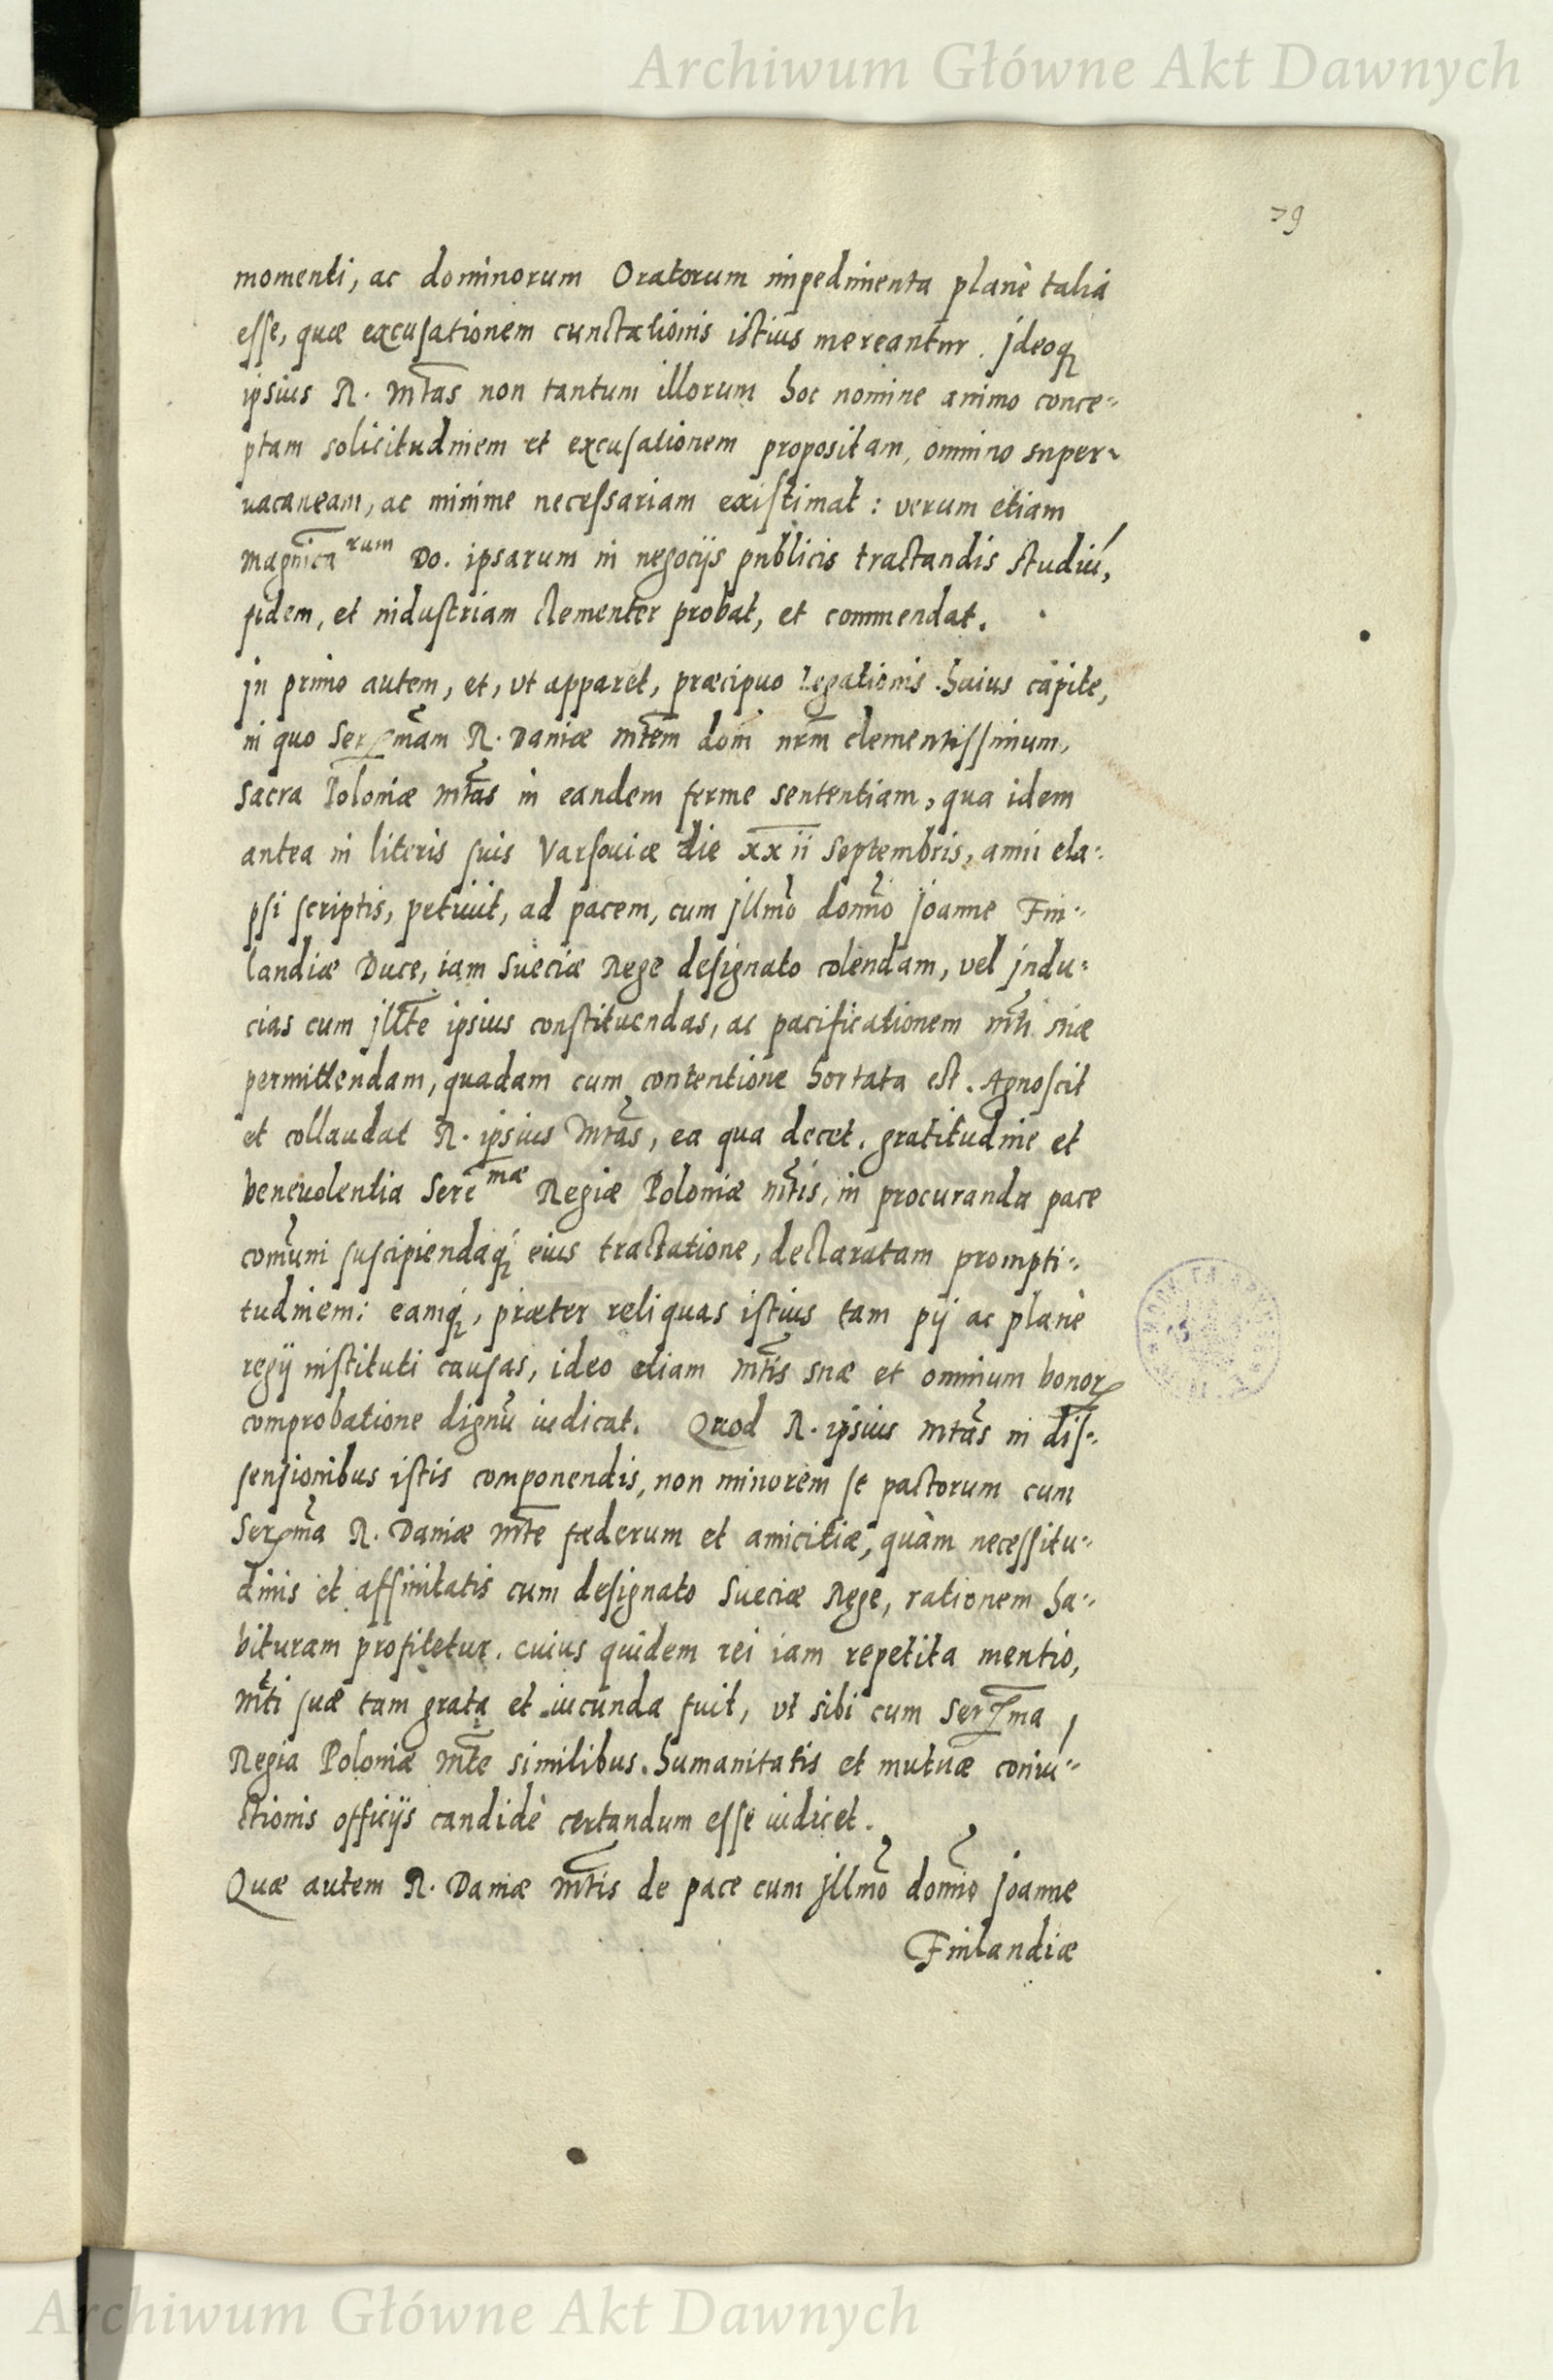 Archiwum Główne Akt Dawnych
79
momenti, ac dominorum Oratorum impedimenta planè talia
esse, quæ excusationem cunctationis istius mereantur. Jdeoq̨
ipsius R. Mtas non tantum illorum hoc nomine animo conce-
ptam solicitudinem et excusationem propositam, omnino super-
uacaneam, ac minime necessariam existimat: verum etiam
Magnica rum Do. ipsarum in negocijs publicis tractandis studiū,
fidem, et industriam clementer probat, et commendat.
Jn primo autem, et, vt apparet, præcipuo Legationis huius capite,
in quo Serma̅m R. Daniæ Mte̅m dom̅ nr̅m clementissimum,
Sacra Poloniæ Mta̅s in eandem ferme sententiam, qua idem
antea in literis suis Varsouiæ die xxii Septembris, anni ela-
psi scriptis, petiuit, ad pacem, cum Jllmo̅ domn̅o Joanne Fin-
landiæ Duce, iam Sueciæ Rege designato colendam, vel Jndu-
cias cum Jllte̅ ipsius constituendas, ac pacificationem Mti̅ suæ
permittendam, quadam cum contentione hortata est. Agnoscit
et collaudat R. ipsius Mta̅s, ea qua decet, gratitudine et
beneuolentia Sere̅mæ Regiæ Poloniæ Mti̅s, in procuranda pace
com̅uni suscipiendaq̨́ eius tractatione, declaratam prompti-
tudinem: eamq̨́, præter reliquas istius tam pij ac planè
regij instituti causas, ideo etiam Mti̅s suæ et omnium bonorꝝ
comprobatione dignū iudicat. Quod R. ipsius Mta̅s in dis-
sensionibus istis componendis, non minorem se pactorum cum
Serma̅ R. Daniæ Mte̅ fæderum et amicitiæ, quàm necessitu-
dinis et affinitatis cum designato Sueciæ Rege, rationem ha-
bituram profitetur. cuius quidem rei iam repetita mentio,
Mti̅ suæ tam grata et iucunda fuit, vt sibi cum Serma̅
Regia Poloniæ Mte̅ similibus humanitatis et mutuæ coniū-
ctionis officijs candidè certandum esse iudicet.
Quæ autem R. Daniæ Mti̅s de pace cum Jllmo̅ domn̅o Joanne
Finlandiæ
Archiwum Główne Akt Dawnych